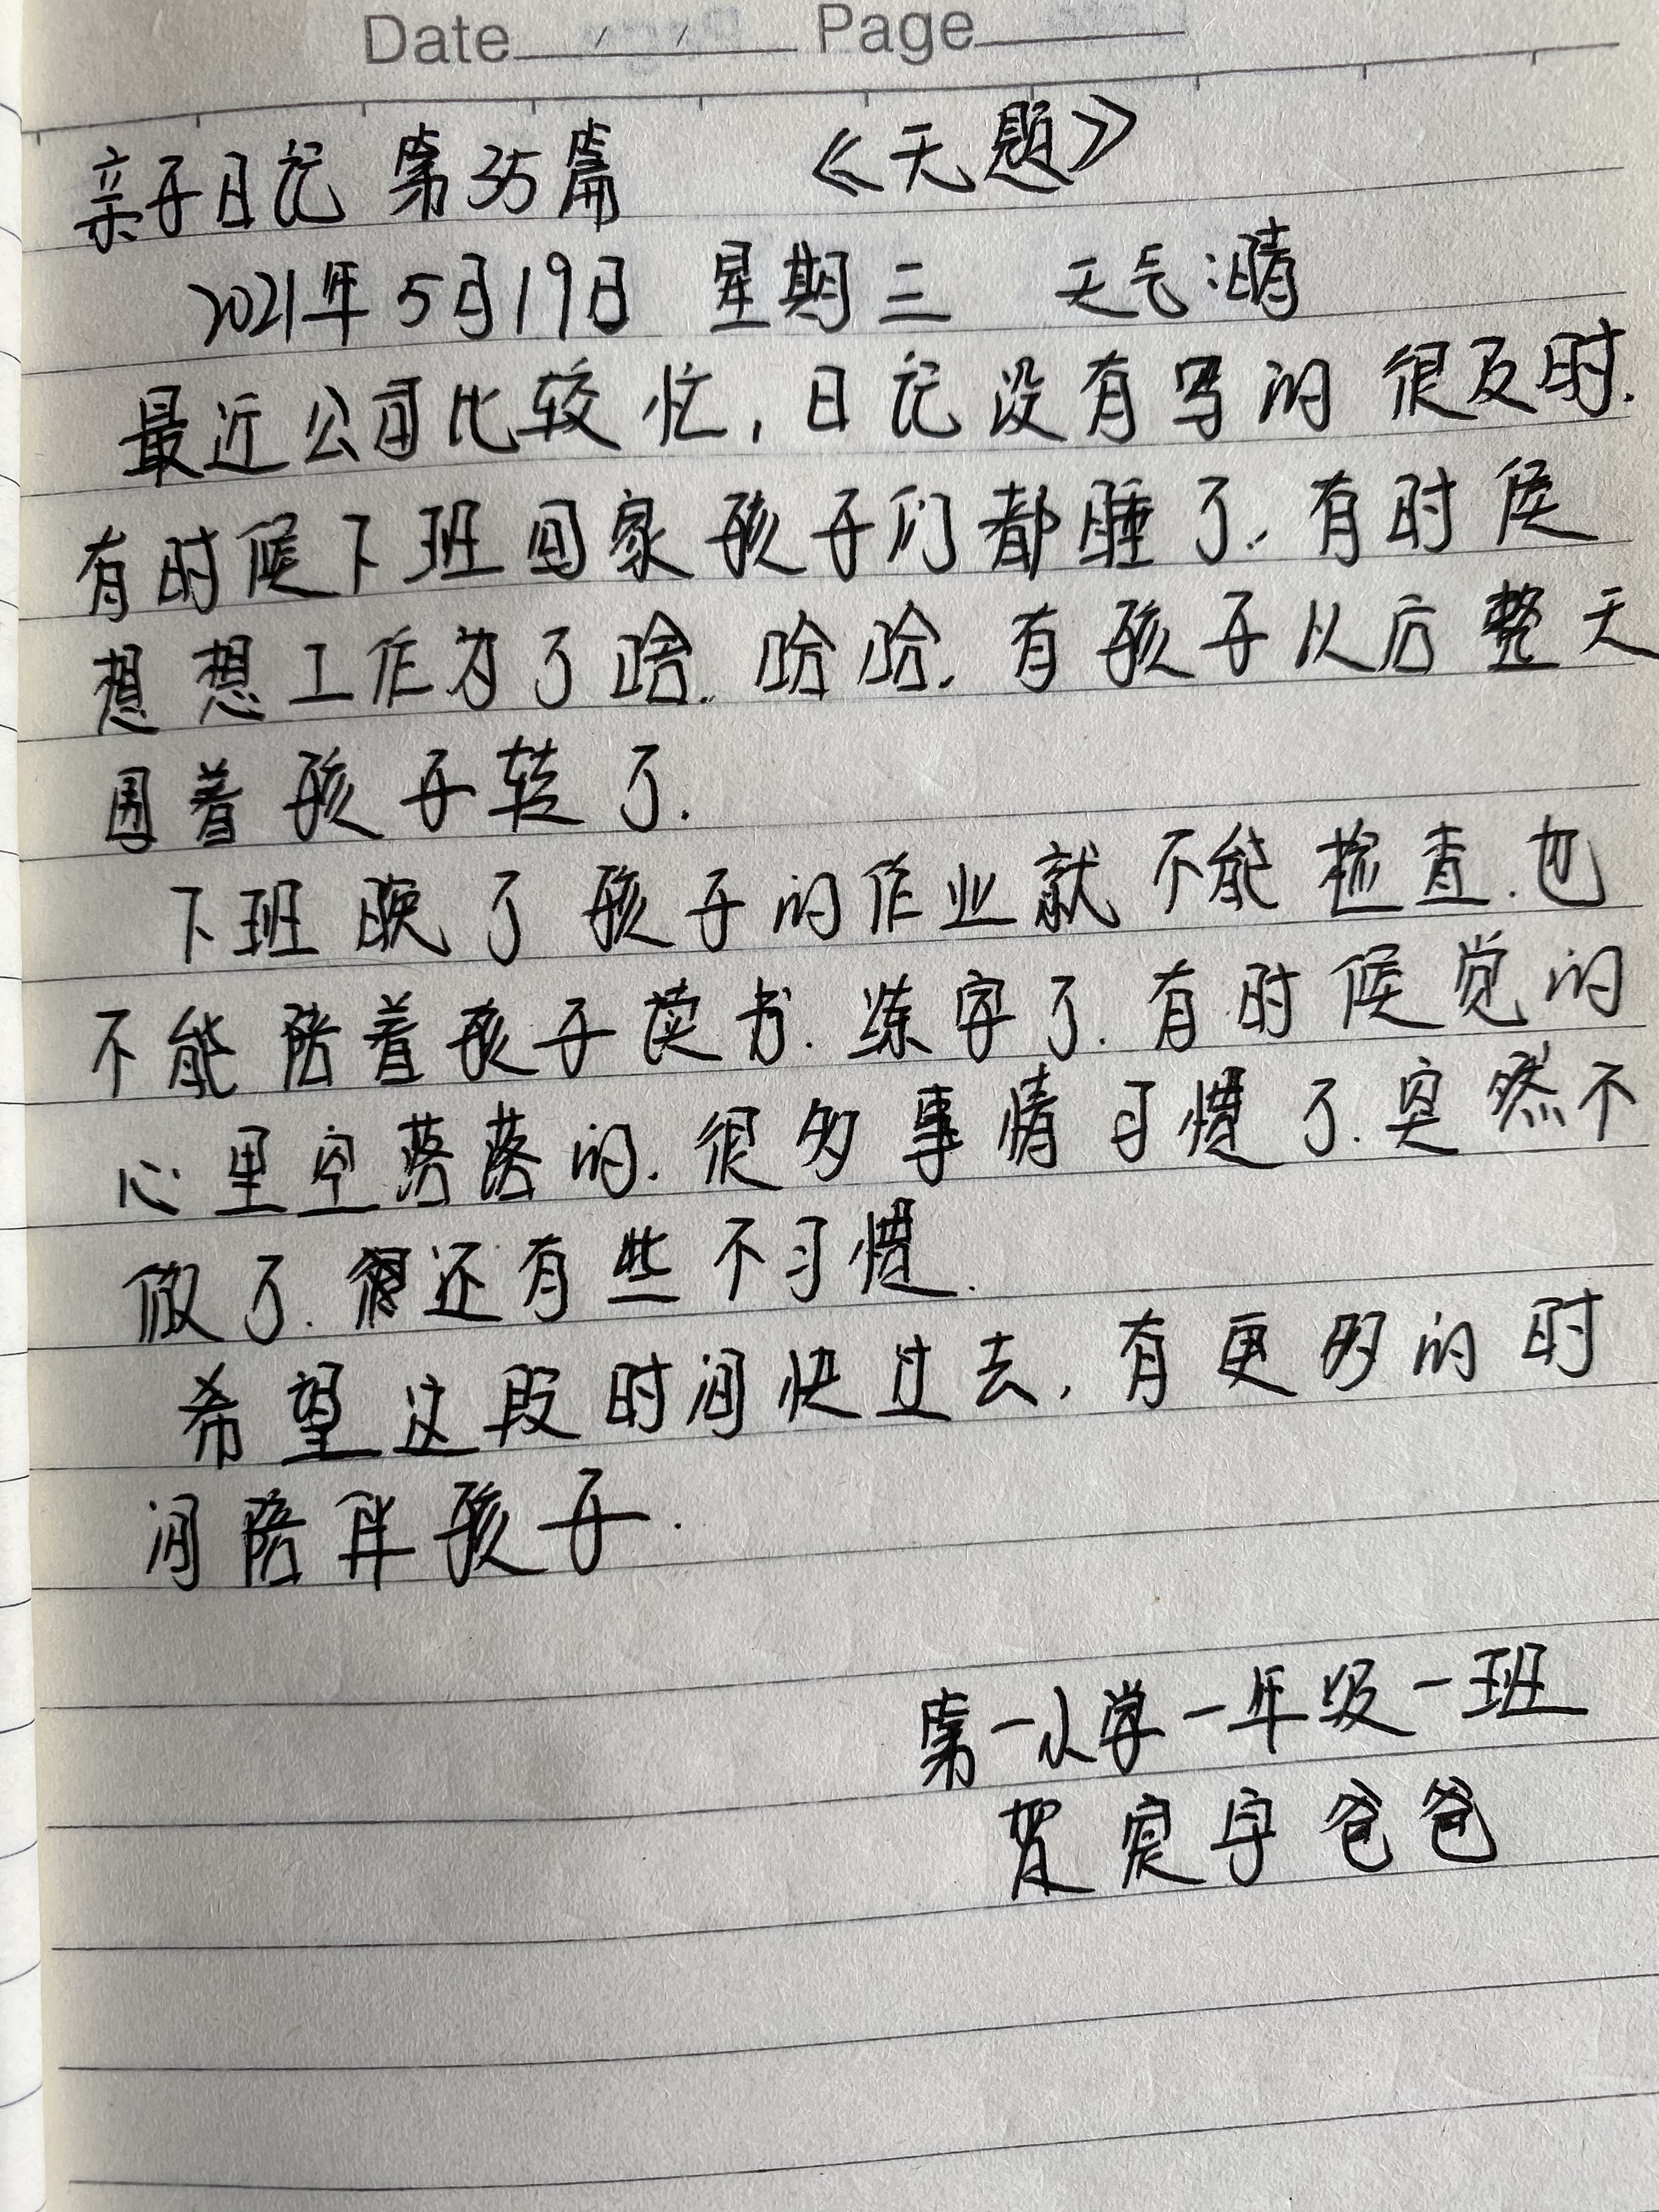 Date Page
亲子日记 第35篇 《无题》
2021年5月19日 星期三 天气:晴
最近公司比较忙,日记没有写的很及时.
有时候下班回家孩子们都睡了.有时候
想想工作为了啥.哈哈.有孩子以后整天
围着孩子转了.
下班晚了孩子的作业就不能检查.也
不能陪着孩子读书.练字了.有时候觉的
心里空落落的.很多事情习惯了.突然不
做了.还有些不习惯.
希望这段时间快过去,有更多的时
间陪伴孩子.
第一小学一年级一班
贺宇爸爸